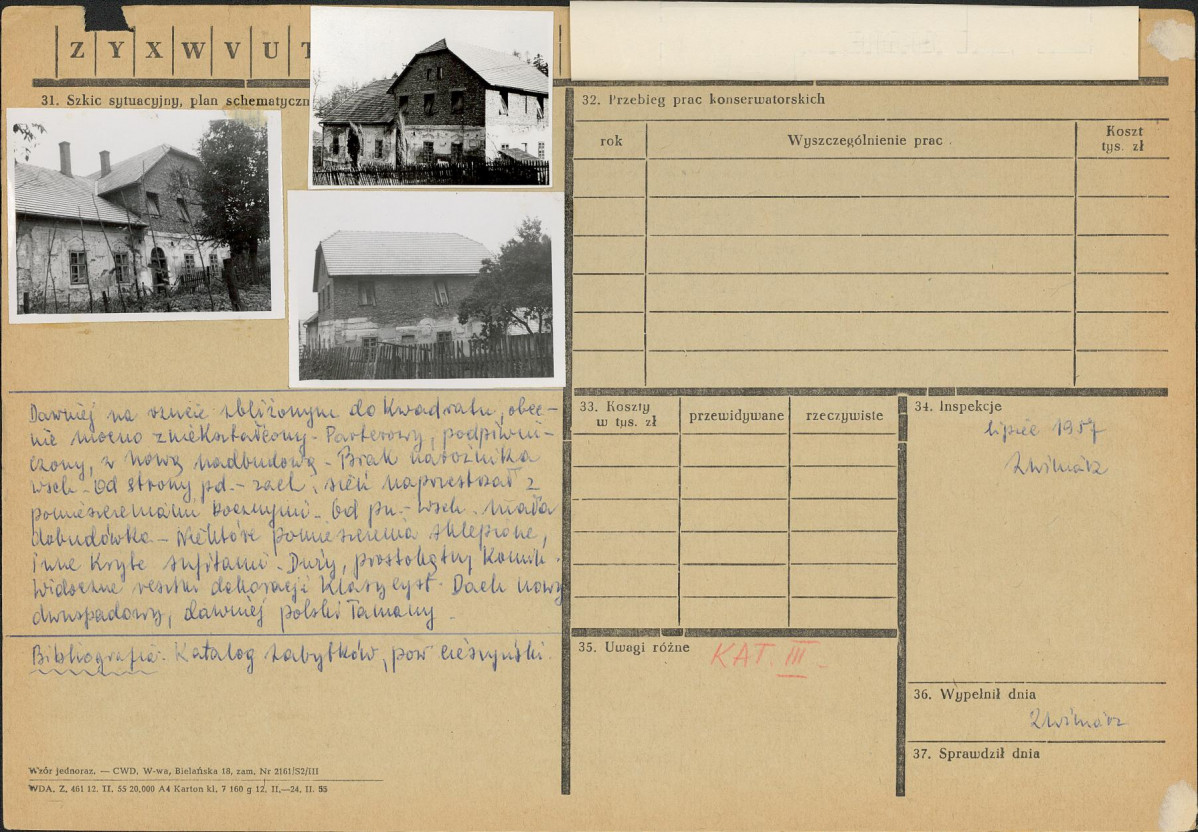 Z Y X W V U T
31. Szkic sytuacyjny, plan schematyczn
Dawniej na rzucie zbliżonym do kwadratu, obec-
nie mocno zniekształcony. Parterowy, podpiwni-
czony, z nową nadbudową. Brak narożnika
wsch. Od strony pd.-zach. sień naprzestrzał z
pomieszczeniami bocznymi. Od pn.-wsch. mała
dobudówka. Niektóre pomieszczenia sklepione,
inne kryte sufitami. Duży, prostokątny komin.
Widoczne resztki dekoracji klasycyst. Dach nowy
dwuspadowy, dawniej polski łamany.
Bibliografia. Katalog zabytków, pow cieszyński.
Wzór jednoraz. — CWD, W-wa, Bielańska 18, zam. Nr 2161/S2/III
WDA. Z. 461 12. II. 55 20.000 A4 Karton kl. 7 160 g 12. II.—24. II. 55
32. Przebieg prac konserwatorskich
rok Wyszczególnienie prac Koszt
tys. zł
33. Koszty
w tys. zł przewidywane rzeczywiste
34. Inspekcje
lipiec 1957
35. Uwagi różne KAT. III.
36. Wypełnił dnia
37. Sprawdził dnia